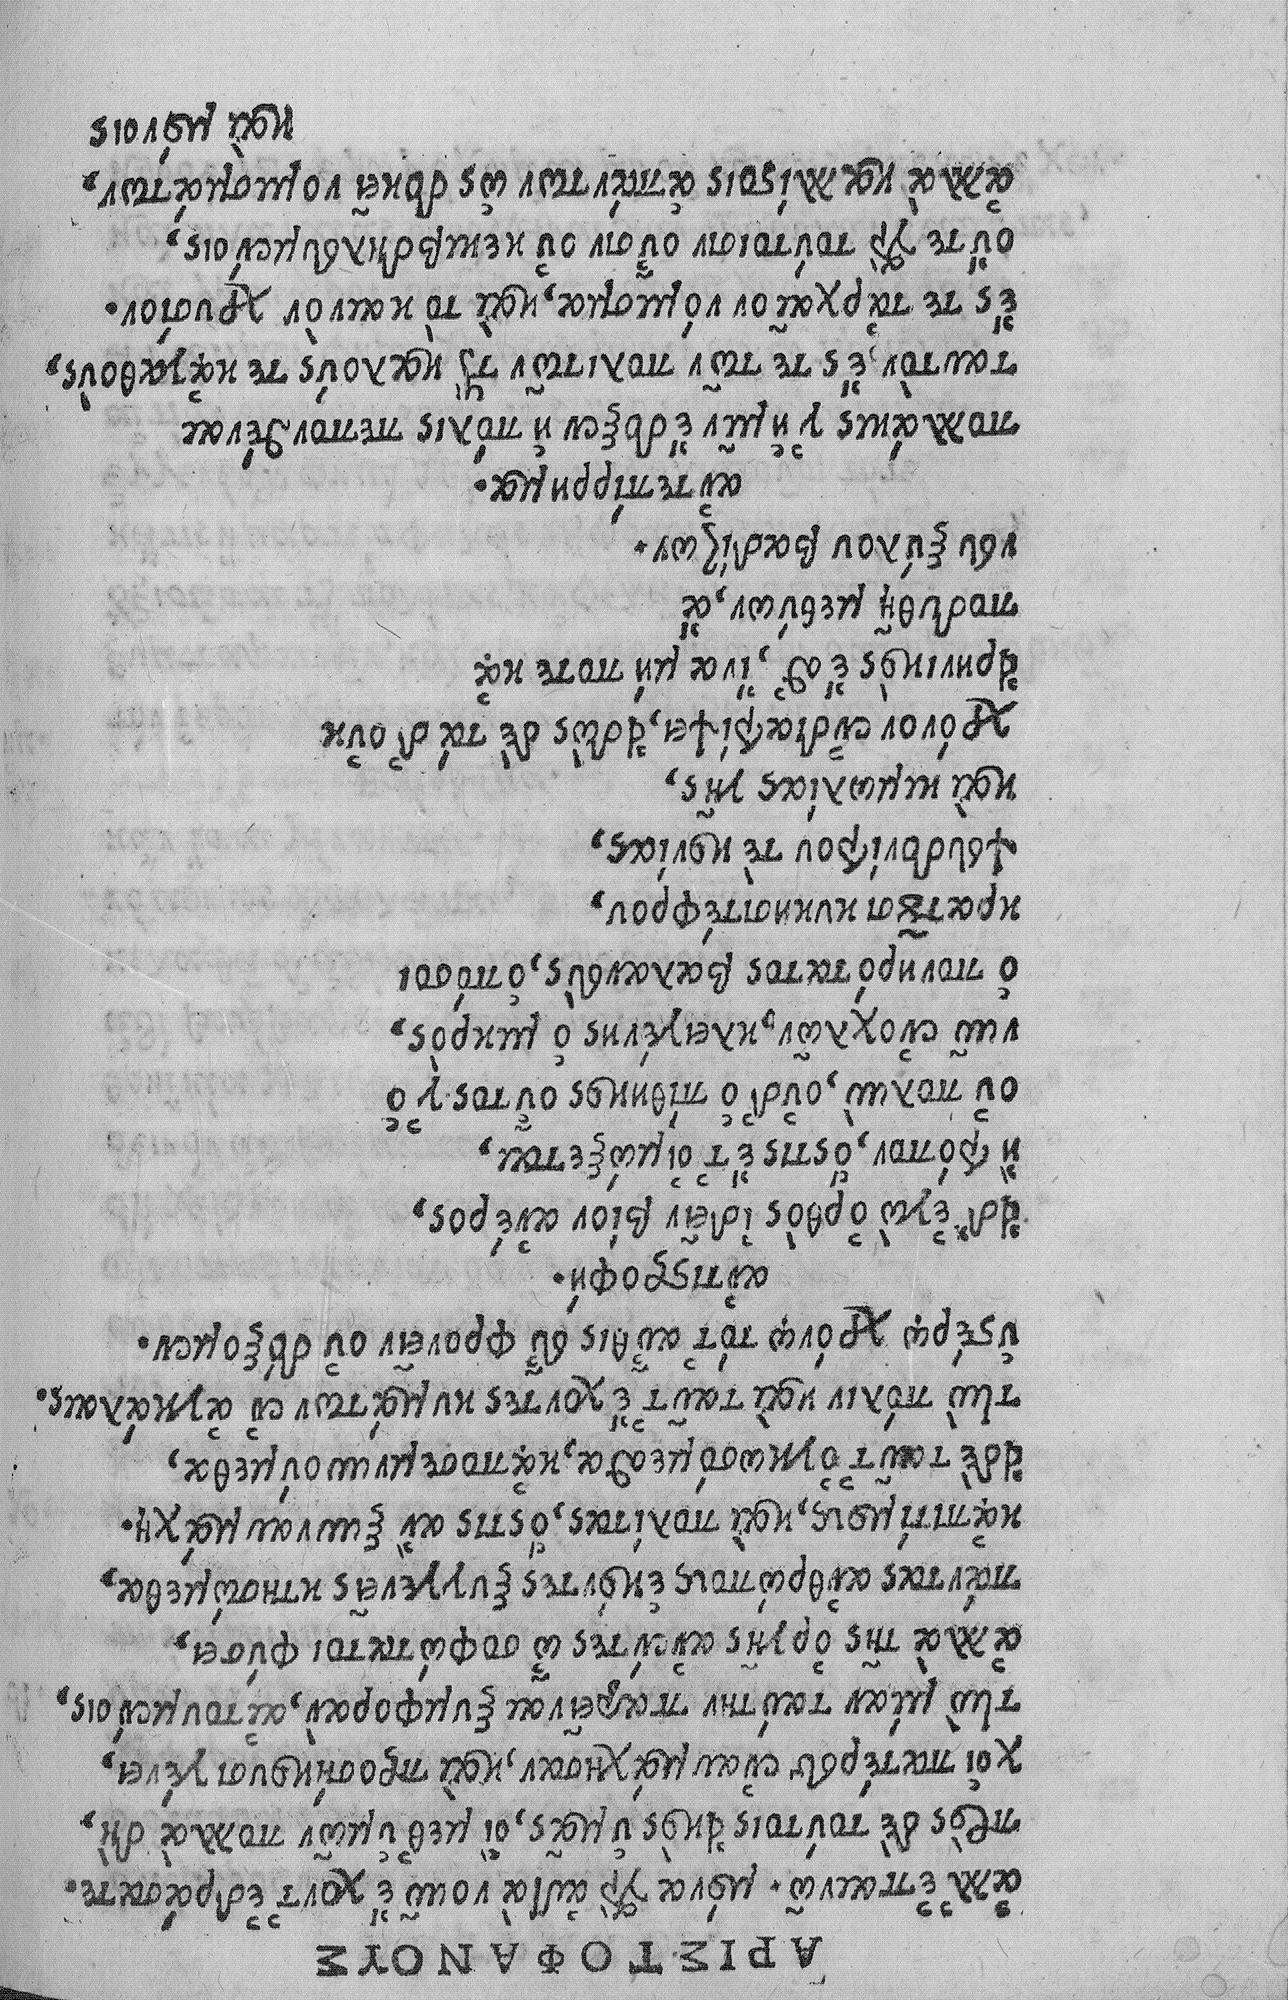 ΑΡΙΣΤΟΦΑΝΟΥΣ
ἀλλ' ἐπαινῶ· μόνα γὰρ αὐτὰ νοῦν ἔχοντ' ἐδράσατε.
πρὸς δὲ τούτοις εἰκὸς ὑμᾶς, οἳ μεθ' ὑμῶν πολλὰ δὴ,
χοἱ πατέρες ἐναυμάχησαν, καὶ προσήκουσι γένει,
τὴν μίαν ταύτην παρεῖναι ξυμφορὰν, αἰτουμένοις,
ἀλλὰ τῆς ὀργῆς ἀνέντες ὦ σοφώτατοι φύσει,
πάντας ἀνθρώπους ἑκόντες ξυγγενεῖς κτησώμεθα,
κἀπιτίμους, καὶ πολίτας, ὅστις ἂν ξυνναυμαχῇ.
εἰ δὲ ταῦτ' ὀγκωσόμεσθα, κἀποσεμνυνούμεθα,
τὴν πόλιν καὶ ταῦτ' ἔχοντες κυμάτων ἐν ἀγκάλαις.
ὑστέρῳ χρόνῳ τότ' αὖθις εὖ φρονεῖν οὐ δόξομεν.
ἀντιστροφή.
εἰ δ' ἐγὼ ὀρθὸς ἰδεῖν βίον ἀνέρος,
ἢ τρόπον, ὅστις ἔτ' οἰμώξεται,
οὐ πολὺν, οὐδ' ὁ πίθηκος οὗτος γ' ὁ
νῦν ἐνοχλῶν, κλειγένης ὁ μικρὸς,
ὁ πονηρότατος βαλανεὺς, ὁπόσοι
κρατοῦσι κυκησιτέφρου,
ψευδονίτρου τε κονίας,
καὶ κιμωλίας γῆς,
χρόνον ἐνδιατρίψει, εἰδὼς δὲ τάδ' οὐκ
εἰρηνικὸς ἔσθ', ἵνα μή ποτε κἀ
ποδυθῇ μεθύων, ἄ
νευ ξύλου βαδίζων.
ἀντεπίρρημα.
πολλάκις γ' ἡμῖν ἔδοξεν ἡ πόλις πεπονθέναι
ταυτὸν, ἔς τε τῶν πολιτῶν τοὺς καλούς τε κἀγαθοὺς,
ἔς τε τἀρχαῖον νόμισμα, καὶ τὸ καινὸν χρυσίον.
οὔτε γὰρ τούτοισιν οὖσιν οὐ κεκιβδηλευμένοις,
ἀλλὰ καλλίστοις ἁπάντων ὡς δοκεῖ νομισμάτων,
καὶ μόνοις